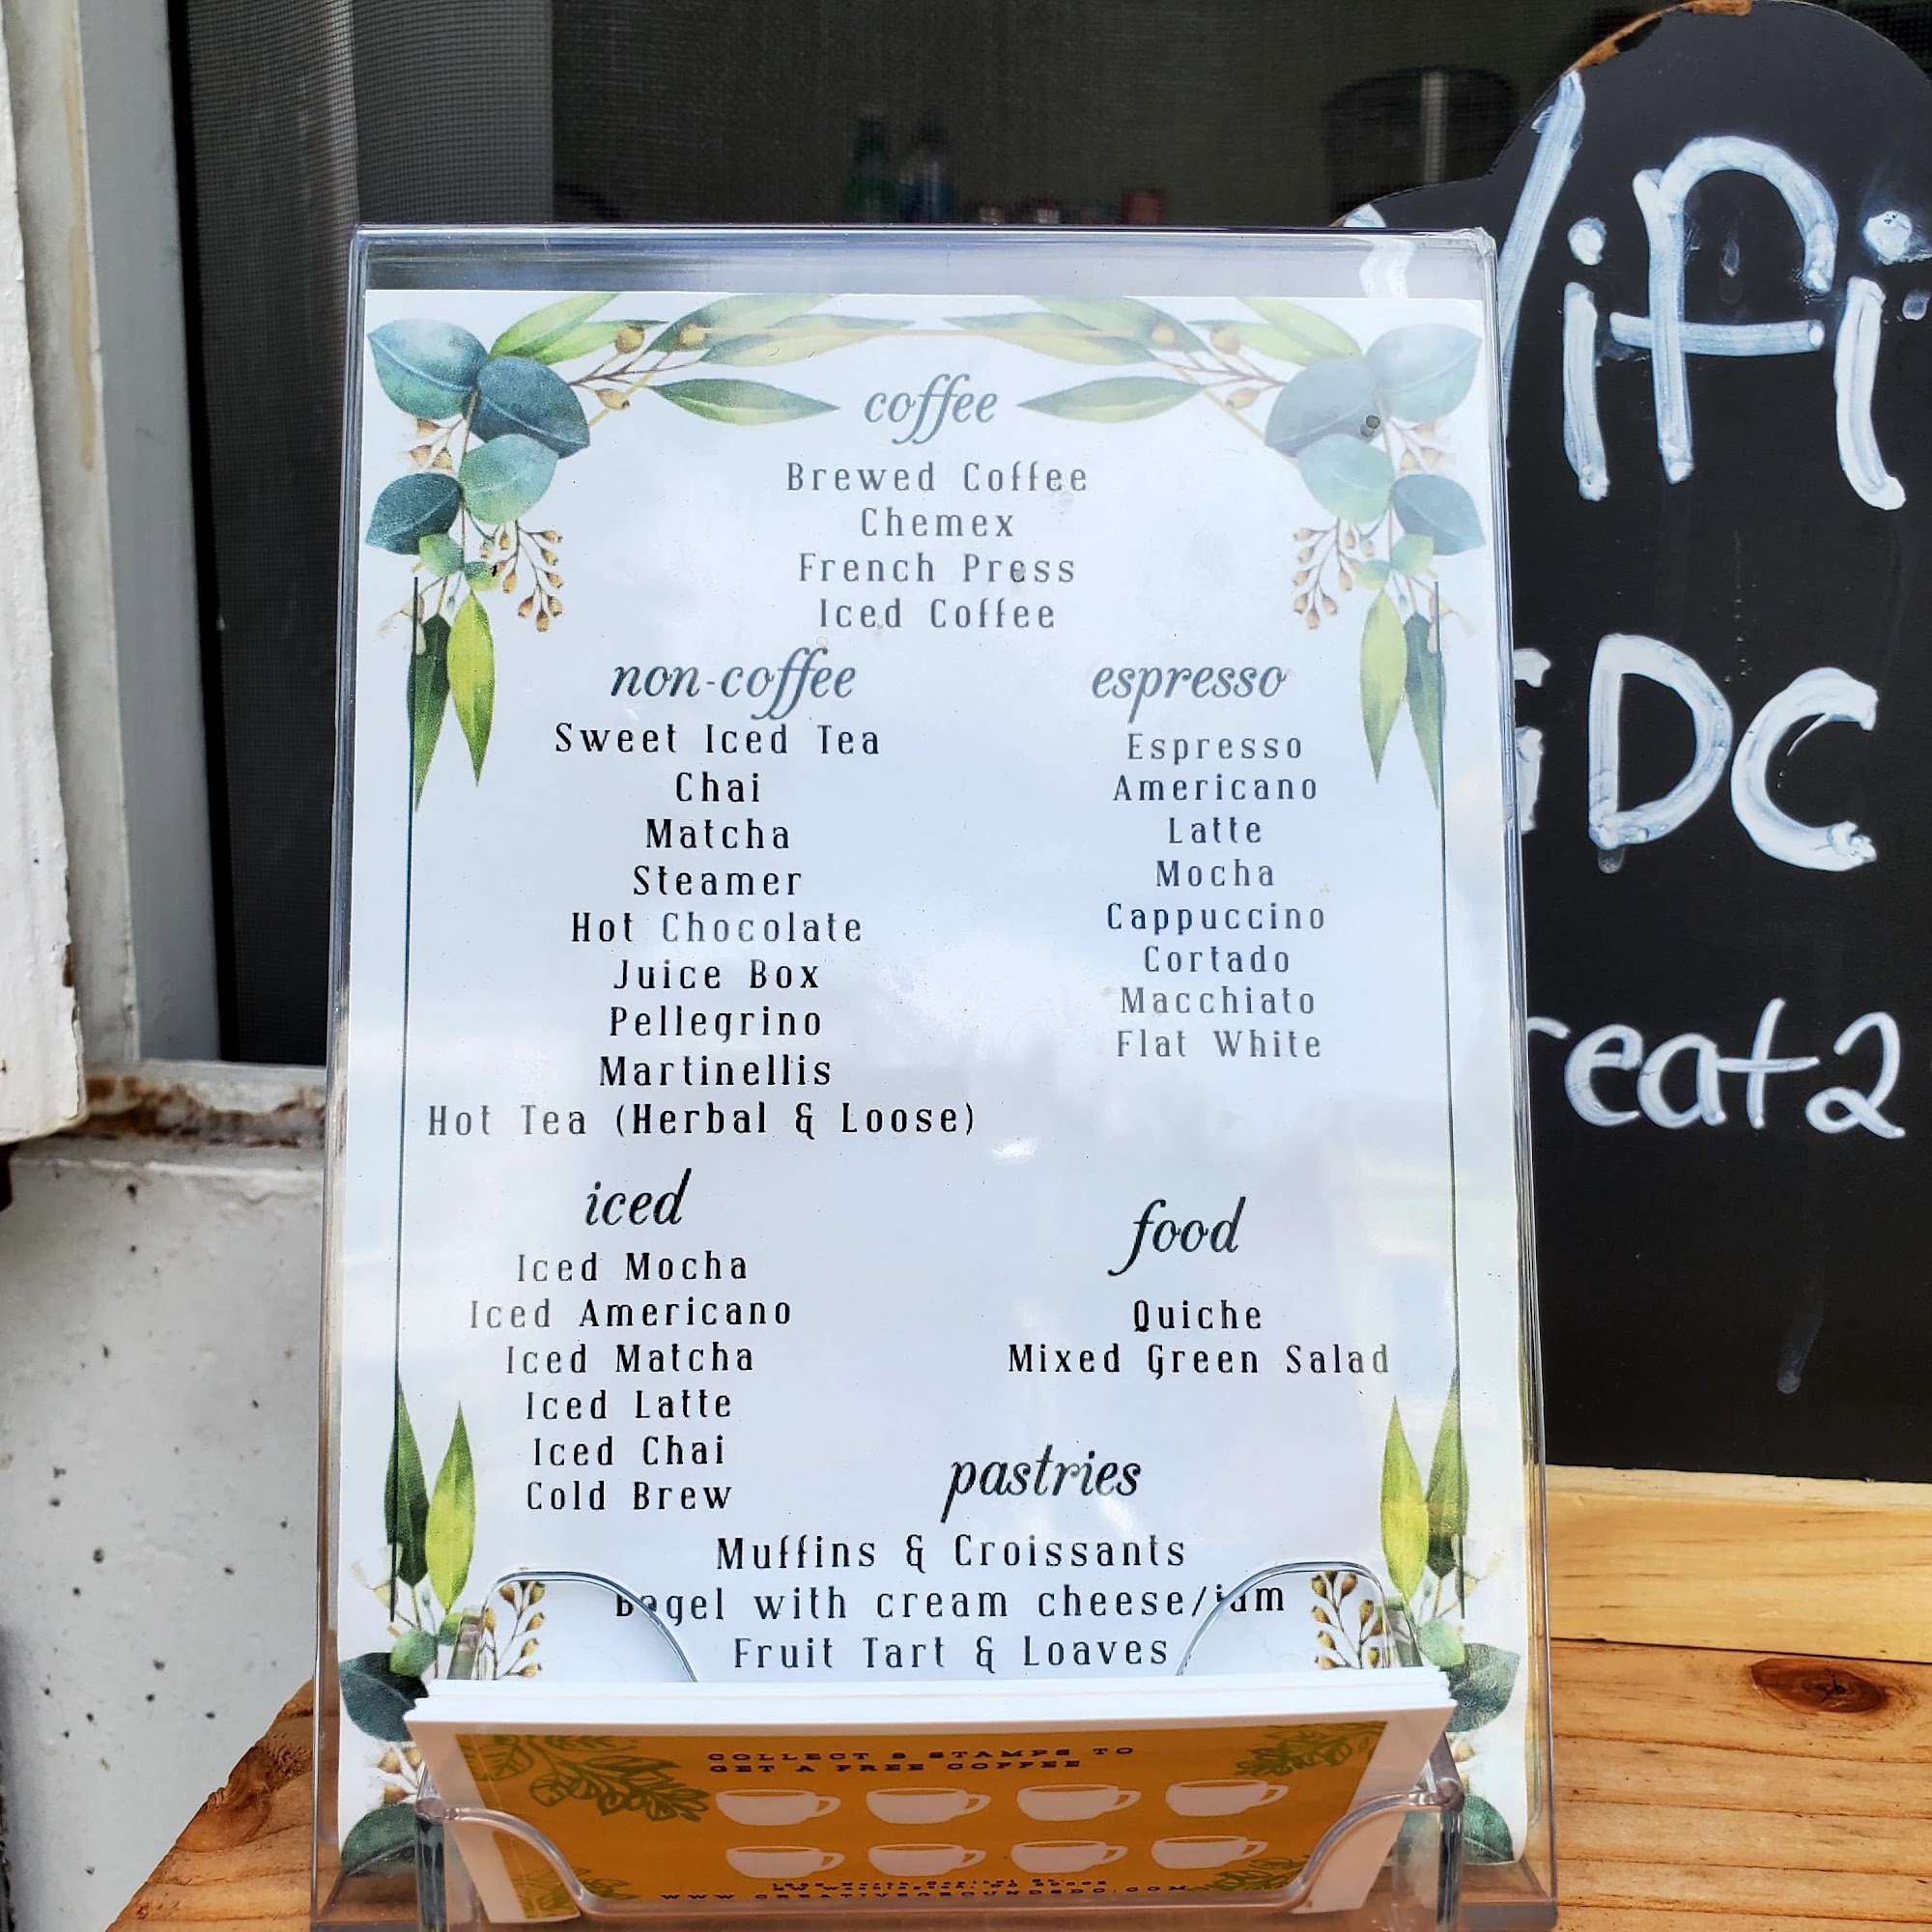 coffee
Brewed Coffee
Chemex
French Press
Iced Coffee
non-coffee
Sweet Iced Tea
Chai
Matcha
Steamer
Hot Chocolate
Juice Box
Pellegrino
Martinellis
Hot Tea (Herbal & Loose)
espresso
Espresso
Americano
Latte
Mocha
Cappuccino
Cortado
Macchiato
Flat White
iced
Iced Mocha
Iced Americano
Iced Matcha
Iced Latte
Iced Chai
Cold Brew
food
Quiche
Mixed Green Salad
pastries
Muffins & Croissants
Bagel with cream cheese/jam
Fruit Tart & Loaves
COLLECT 8 STAMPS TO
GET A FREE COFFEE
WWW.CREATIVEGROUNDSDC.COM
Wifi
GDC
reat2